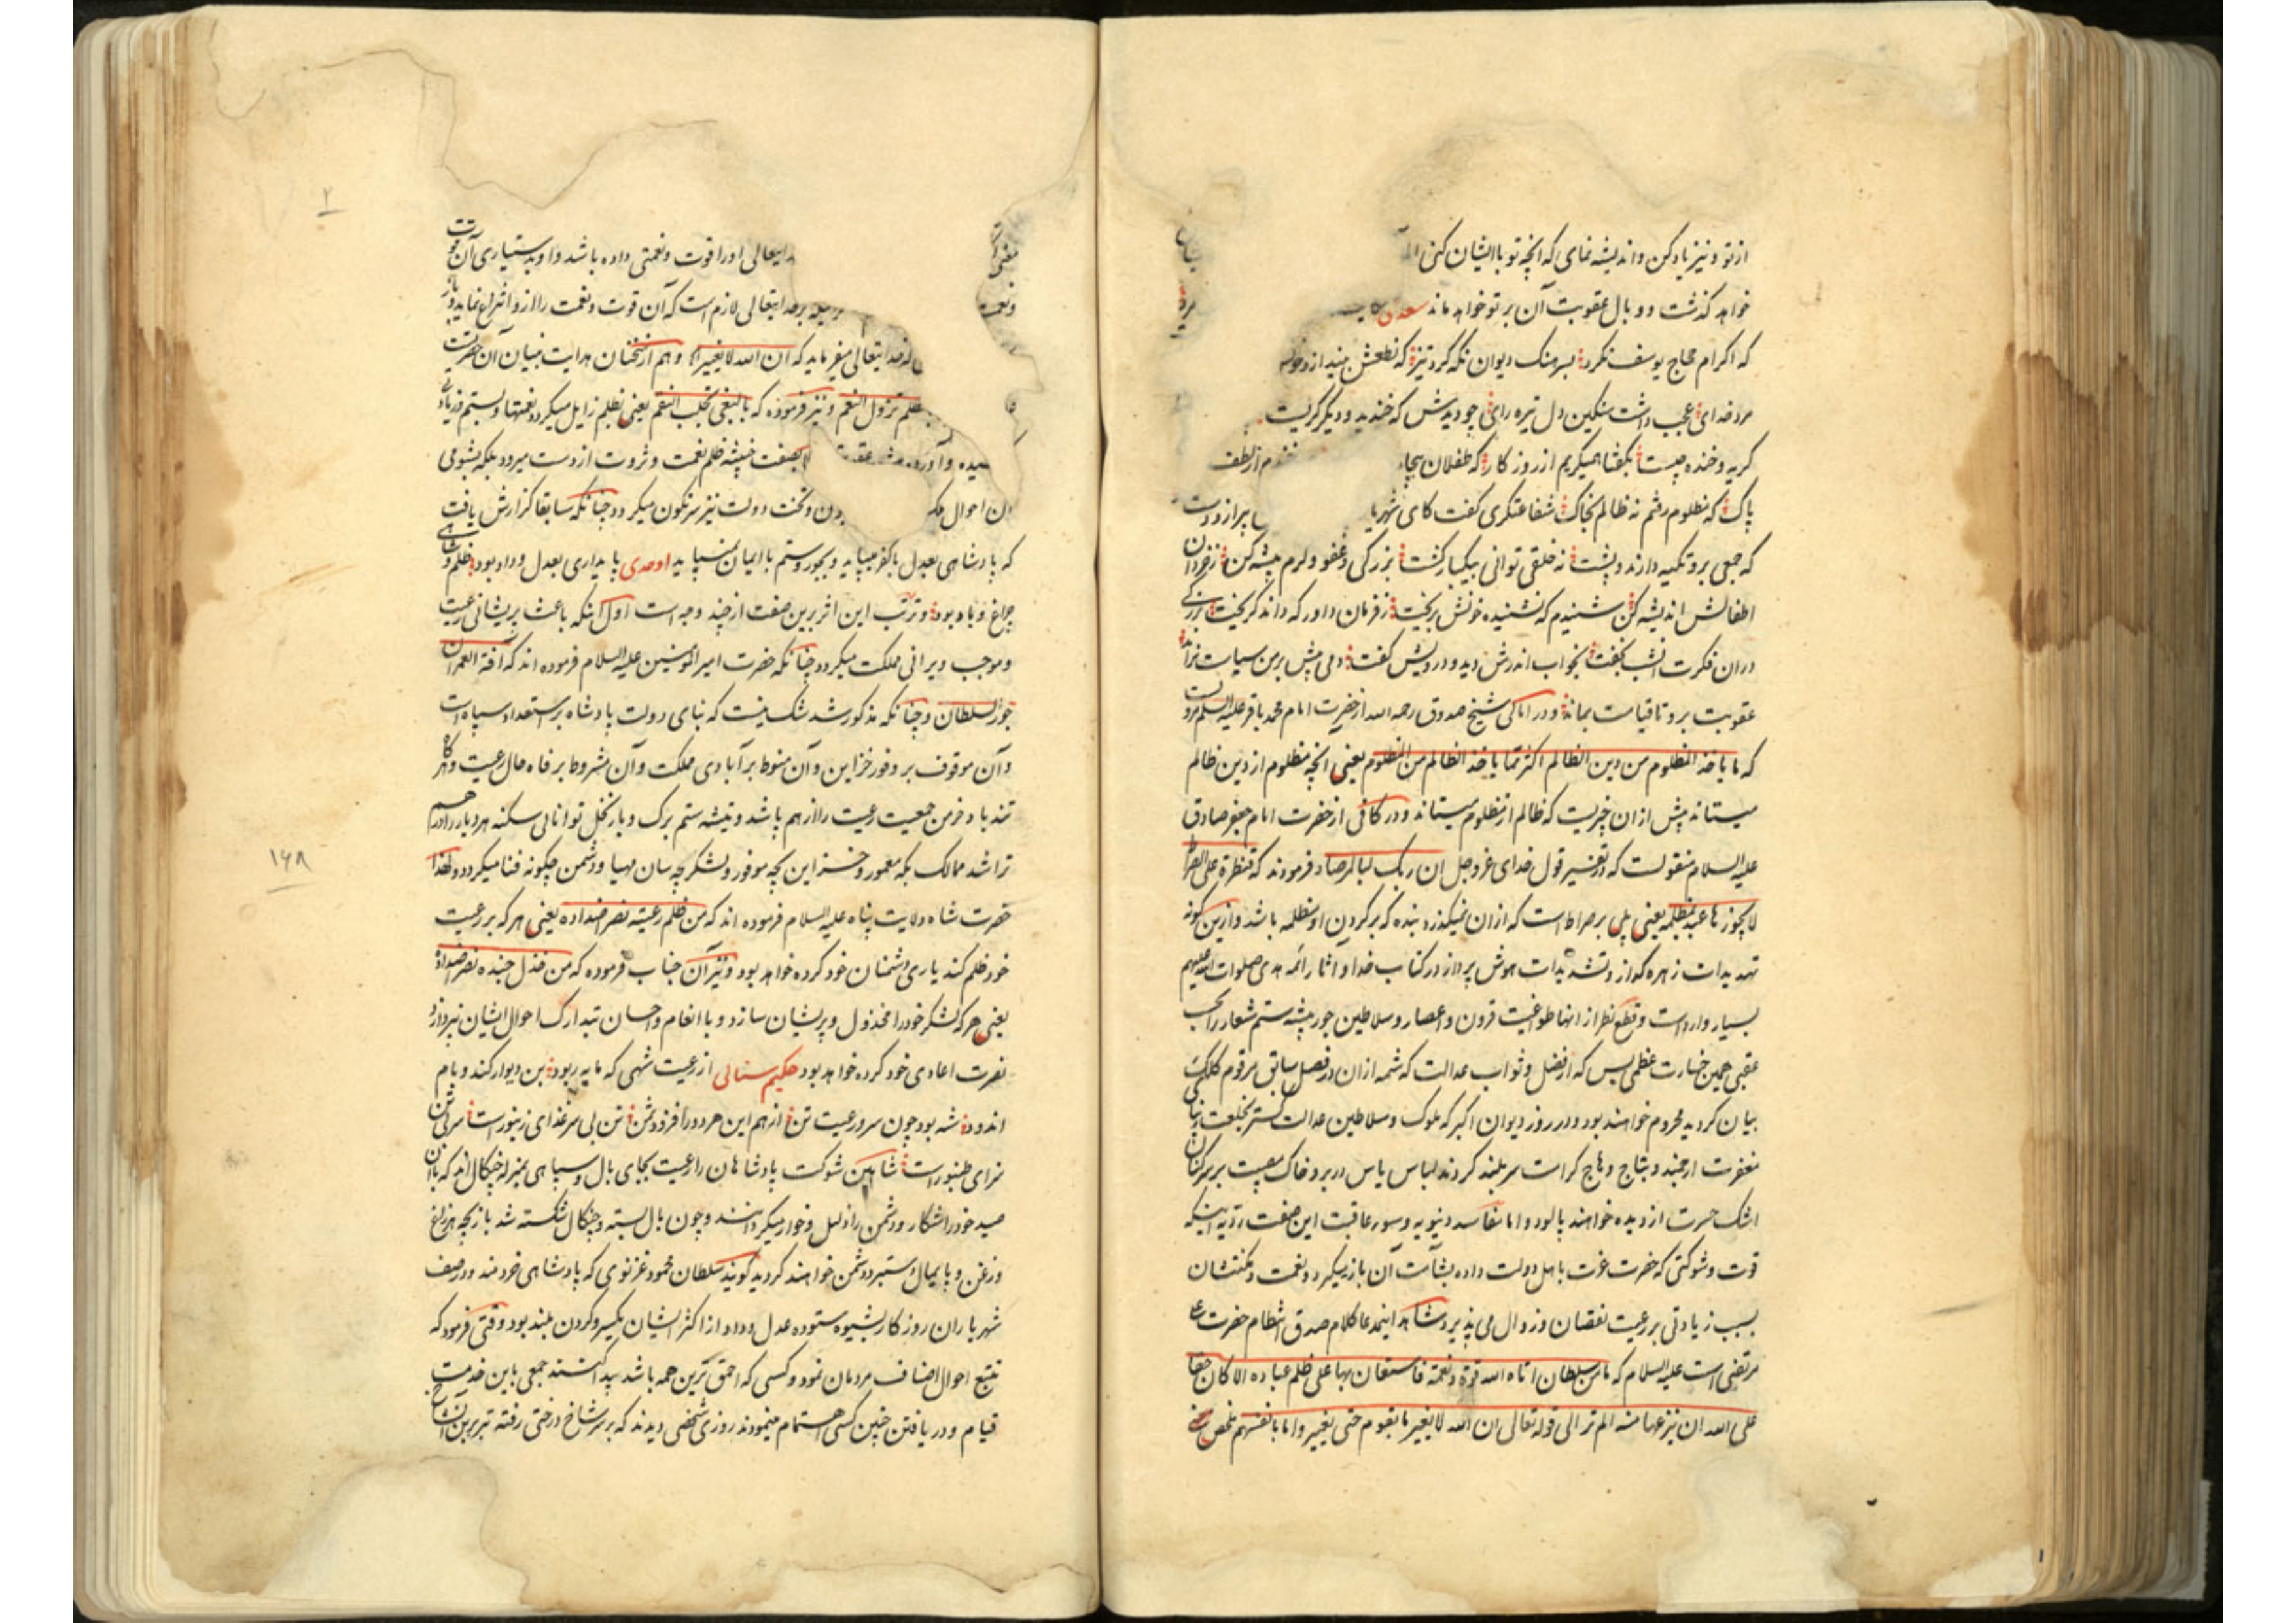 از تو و نیز یاد کن و اندیشه نمای که آنچه تو با ایشان کنی
خواهد گذشت و وبال عقوبت آن بر تو خواهد ماند سعدی
که اکرام حجاج یوسف نکرد بسرهنک دیوان نکه کرد تیز که نطعش بینداز و خونش
مرد خدای عجب داشت سنکین دل تیره رای چو دیدش که خندید و دیگر گریست
کریه و خنده چیست بگفتا همیکریم از روزکار که طفلان بیچا خندم از لطف
پاک که مظلوم رفتم نه ظالم بخاک شفاعتکری گفت کای شهریا
که جمعی برو تکیه دارند و پشت نه خلقی توانی بیکبار کشت بزرکی و عفو و کرم پیشه کن ز خردان
اطفالش اندیشه کن شنیدم که نشنید و خونش بریخت ز فرمان داور که داند کریخت بزرکی
دران فکرت آنشب بخفت بخواب اندرش دید و درویش گفت دمی بیش بر من سیاست نراند
عقوبت برو تا قیامت بماند و در امالی شیخ صدوق رحمه الله از حضرت امام محمد باقر علیه السلم مرویست
که ما یاخذ المظلوم من دین الظالم اکثر مما یاخذ الظالم من المظلوم یعنی آنچه مظلوم از دین ظالم
میستاند بیش از ان چیزیست که ظالم از مظلوم میستاند و در کافی از حضرت امام جعفر صادق
علیه السلام منقولست که در تفسیر قول خدای عز و جل ان ربک لبالمرصاد فرمودند که قنطرة علی الصراط
لا یجوزها عبد بمظلمه یعنی پلی بر صراط است که از ان نمیکذرد بنده که بر کردن او مظلمه باشد و ازین کونه
تهدیدات زهره کداز و تشدیدات هوش پرداز در کتاب خدا و آثار ائمه هدی صلوات الله علیهم
بسیار وارد است و قطع نظر از انها طواغیت قرون و اعصار و سلاطین جور پیشه ستم شعار را بحسب
عقبی همین خسارت عظمی بس که از فضل و ثواب عدالت که شمه از ان در فصل سابق مرقوم کلک
بیان کردید محروم خواهند بود و در روز دیوان اکبر که ملوک و سلاطین عدالت کستر بخلعت
مغفرت ارجمند و بتاج وهاج کرامت سربلند کردند لباس یاس در بر و خاک مصیبت بر سر کنان
اشک حسرت از دیده خواهند پالود و اما مفاسد دنیویه و سوء عاقبت این صفت ردیه اینکه
قوت و شوکتی که حضرت عزت باهل دولت داده بشآمت آن باز میکیرد و نعمت و مکنتشان
بسبب زیادتی بر رعیت نقصان و زوال می پذیرد شاهد اینمدعا کلام صدق انتظام حضرت
مرتضی است علیه السلام که ما من سلطان اتاه الله قوة و نعمة فاستعان بها علی ظلم عباده الا کان حقا
علی الله ان ینزعها منه الم تر الی قوله تعالی ان الله لا یغیر ما بقوم حتی یغیروا ما بانفسهم
ایتعالی او را قوت و نعمتی داده باشد و او بدستیاری آن
برخدایتعالی لازم است که آن قوت و نعمت را از و انتزاع نماید
خدایتعالی میفرماید که ان الله لا یغیر و هم از سخنان هدایت بنیان آن حضرت
بظلم تزول النعم و نیز فرموده که بالبغی تجلب النقم یعنی بظلم زایل میکردد نعمتها و بستم
بصفت خبیثه ظلم نعمت و ثروت از دست میرود بلکه بشومی
ن احوال و تخت دولت نیز سرنکون میکردد چنانکه سابقا کزارش یافت
که پادشاهی بعدل با کفر میپاید و بجور و ستم با ایمان نمیپاید اوحدی پایداری بعدل و داد بود ظلم و شاهی
چراغ و باد بود و ترتب این اثر برین صفت از چند وجه است اول اینکه باعث پریشانی رعیت
و موجب ویرانی مملکت میکردد چنانکه حضرت امیر المومنین علیه السلام فرموده اند که آفة العمران
جور السلطان و چنانکه مذکور شد شک نیست که بنای دولت پادشاه بر استعداد سپاه است
و آن موقوف بر وفور خزاین و آن منوط بر آبادی مملکت و آن مشروط بر رفاه حال رعیت و هر کاه
تندباد خرمن جمعیت رعیت را از هم پاشد و تیشه ستم برک و بار نخل توانائی سکنه هر دیار را در هم
تراشد ممالک بکه معمور و خزاین بچه موفور و لشکر چه سان مهیا و دشمن چکونه فنا میکردد و لهذا
حضرت شاه ولایت پناه علیه السلام فرموده اند که من ظلم رعیته نصر اضداده یعنی هر که بر رعیت
خود ظلم کند یاری دشمنان خود کرده خواهد بود و نیز آن جناب فرموده که من خذل جنده نصر اضداده
یعنی هر که لشکر خود را مخذول و پریشان سازد و با انعام و احسان تدارک احوال ایشان نپردازد
نصرت اعادی خود کرده خواهد بود حکیم سنائی از رعیت شهی که مایه ربود بن دیوار کند و بام
اندود شه بود چون سر و رعیت تن از هم این هر دو را فزود ثمن تن بی سر غذای زنبور است سر بی تن
سزای طنبور است شاهین شوکت پادشاهان را رعیت بجای بال و سپاهی بمنزله چنکال اند که بآن
صید خود را شکار و دشمن را ذلیل و خوار میکردانند و چون بال بسته و چنکال شکسته شد بازیچه هر زاغ
و زغن و پایمال دستبرد دشمن خواهند کردید کویند سلطان محمود غزنوی که پادشاهی خردمند و در صف
شهریاران روزکار بشیوه ستوده عدل و داد از اکثر ایشان بیکسر و کردن بلند بود وقتی فرمود که
تتبع احوال اصناف مردمان نمود و کسی که احمق ترین همه باشد پیدا کنند جمعی باین خدمت
قیام و در یافتن چنین کسی اهتمام مینمودند روزی شخصی دیدند که بر سر شاخ درختی رفته تبر بر بن آن شاخ
۱۶۸